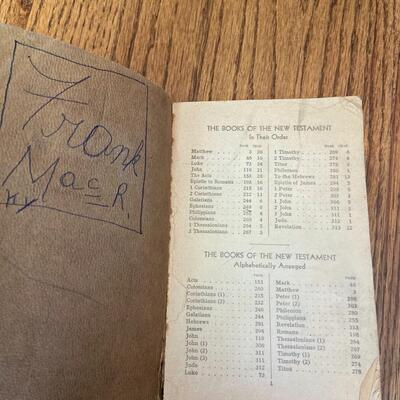 Frank
Mack.
THE BOOKS OF THE NEW TESTAMENT
In Their Order
PAGE CHAP. PAGE CHAP.
Matthew 3 28 1 Timothy 269 6
Mark 46 16 2 Timothy 274 4
Luke 73 24 Titus 278
John 119 21 Philemon 280 1
The Acts 151 28 To the Hebrews 281 13
Epistle to Romans 198 16 Epistle of James 294 5
1 Corinthians 215 16 1 Peter
2 Corinthians 232 13 2 Peter
Galatians 244 6 1 John
Ephesians 6 2 John
Philippians 4 3 John 311 1
Colossians 4 Jude 311 1
1 Thessalonians 5 Revelation 313 22
2 Thessalonians 267 3
THE BOOKS OF THE NEW TESTAMENT
Alphabetically Arranged
PAGE PAGE
Acts 151 Mark 46
Colossians 260 Matthew 3
Corinthians (1) 215 Peter (1)
Corinthians (2) 232 Peter (2) 303
Ephesians Philemon 280
Galatians 244 Philippians 255
Hebrews 281 Revelation 313
James 294 Romans 198
John 119 Thessalonians (1)
John (1) Thessalonians (2) 267
John (2) 311 Timothy (1) 269
John (3) 311 Timothy (2) 274
Jude 311 Titus 278
Luke 73